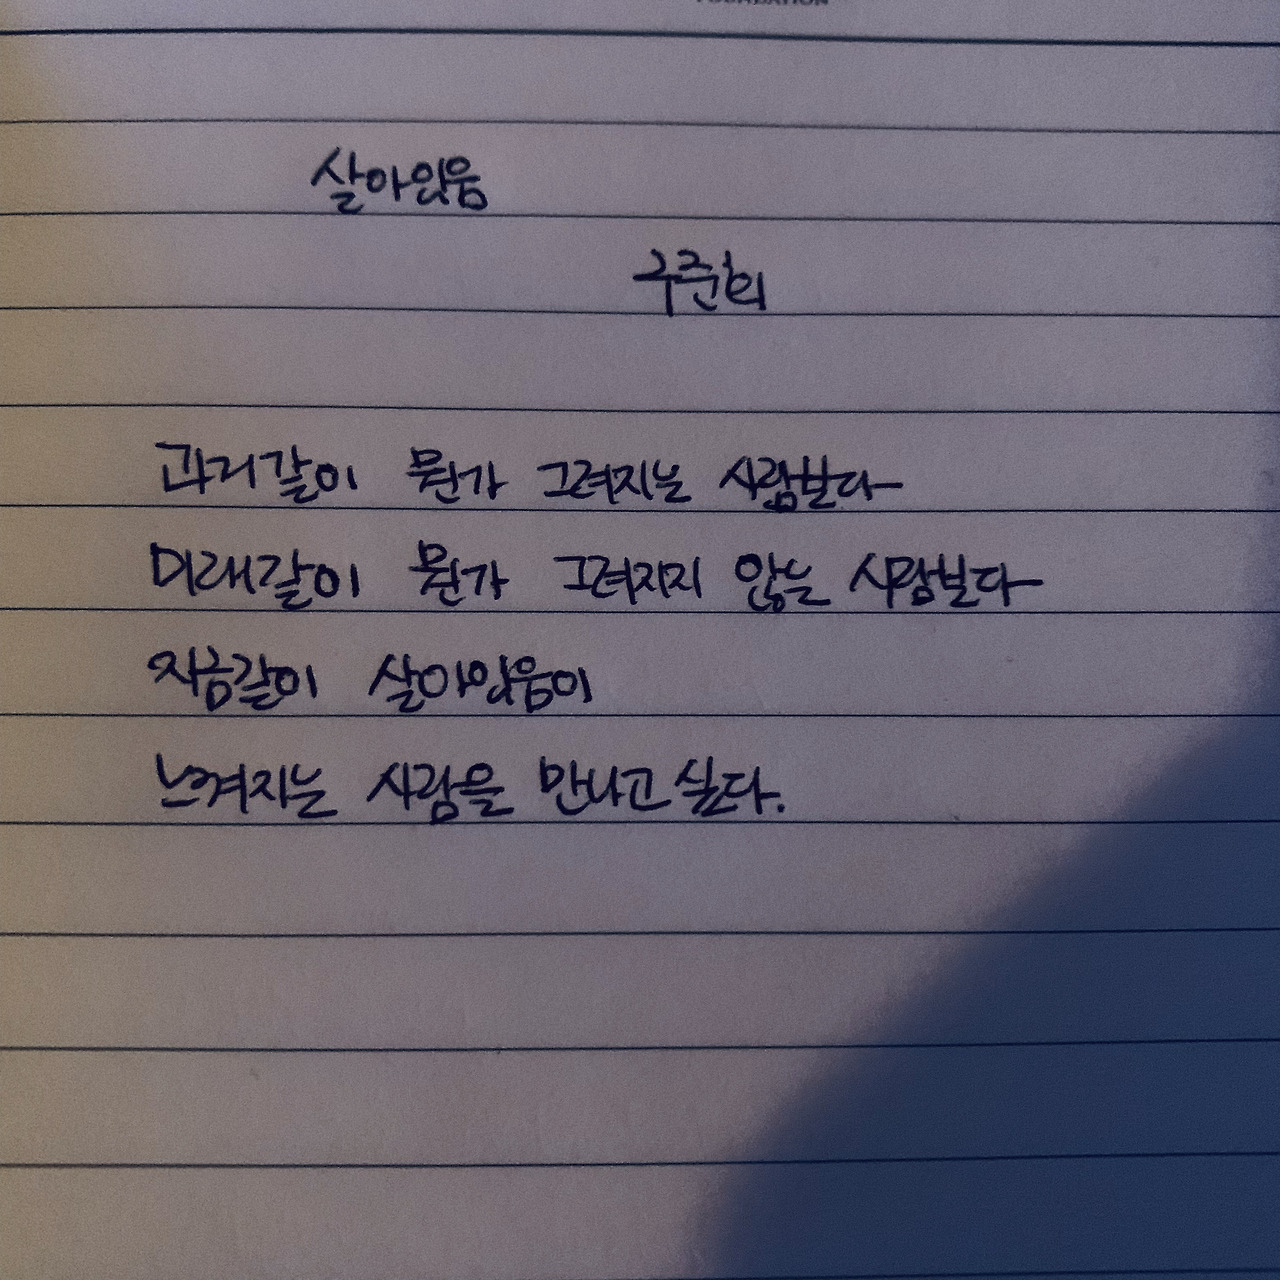 FOUNDATION
살아있음
구준회
과거같이 뭔가 그려지는 사람보다
미래같이 뭔가 그려지지 않는 사람보다
지금같이 살아있음이
느껴지는 사람을 만나고 싶다.